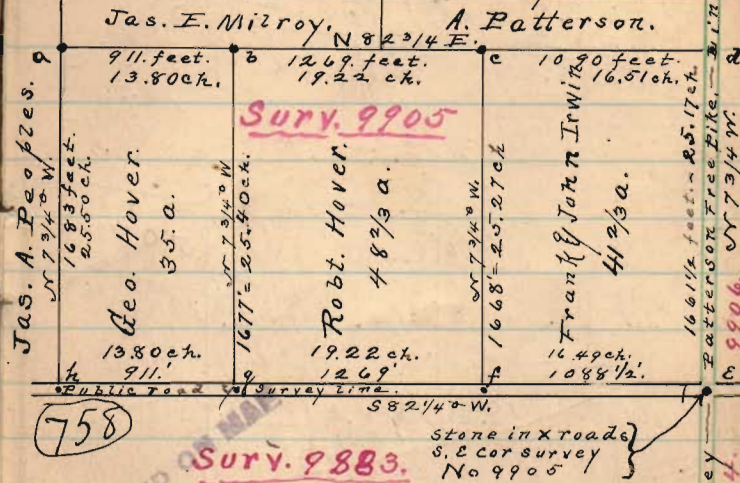 Jas. E. Milroy.
A. Patterson.
N 82 3/4 E.
a
911. feet.
13.80ch.
b
1269. feet.
19.22 ch.
c
1090 feet.
16.51ch.
d
Surv. 9905
Jas. A. Peoples.
N 7 3/4° W.
1683 feet.
25.50ch.
Geo. Hover.
35.a.
N 7 3/4° W.
1677' = 25.40ch.
Robt. Hover.
48 2/3 a.
N 7 3/4° W.
1668' = 25.27ch
Frank & John Irwin
41 2/3 a.
1661 1/2 feet. - 25.17ch
Patterson Free Pike.
N 7 3/4 W.
9906
13.80ch.
911.'
19.22 ch.
1269'
16.49ch.
1088 1/2'
h
g
f
E
Public road & Survey line.
S 82 1/4° W.
758
Surv. 9883.
stone in x roads
S. E cor survey
No 9905
ey